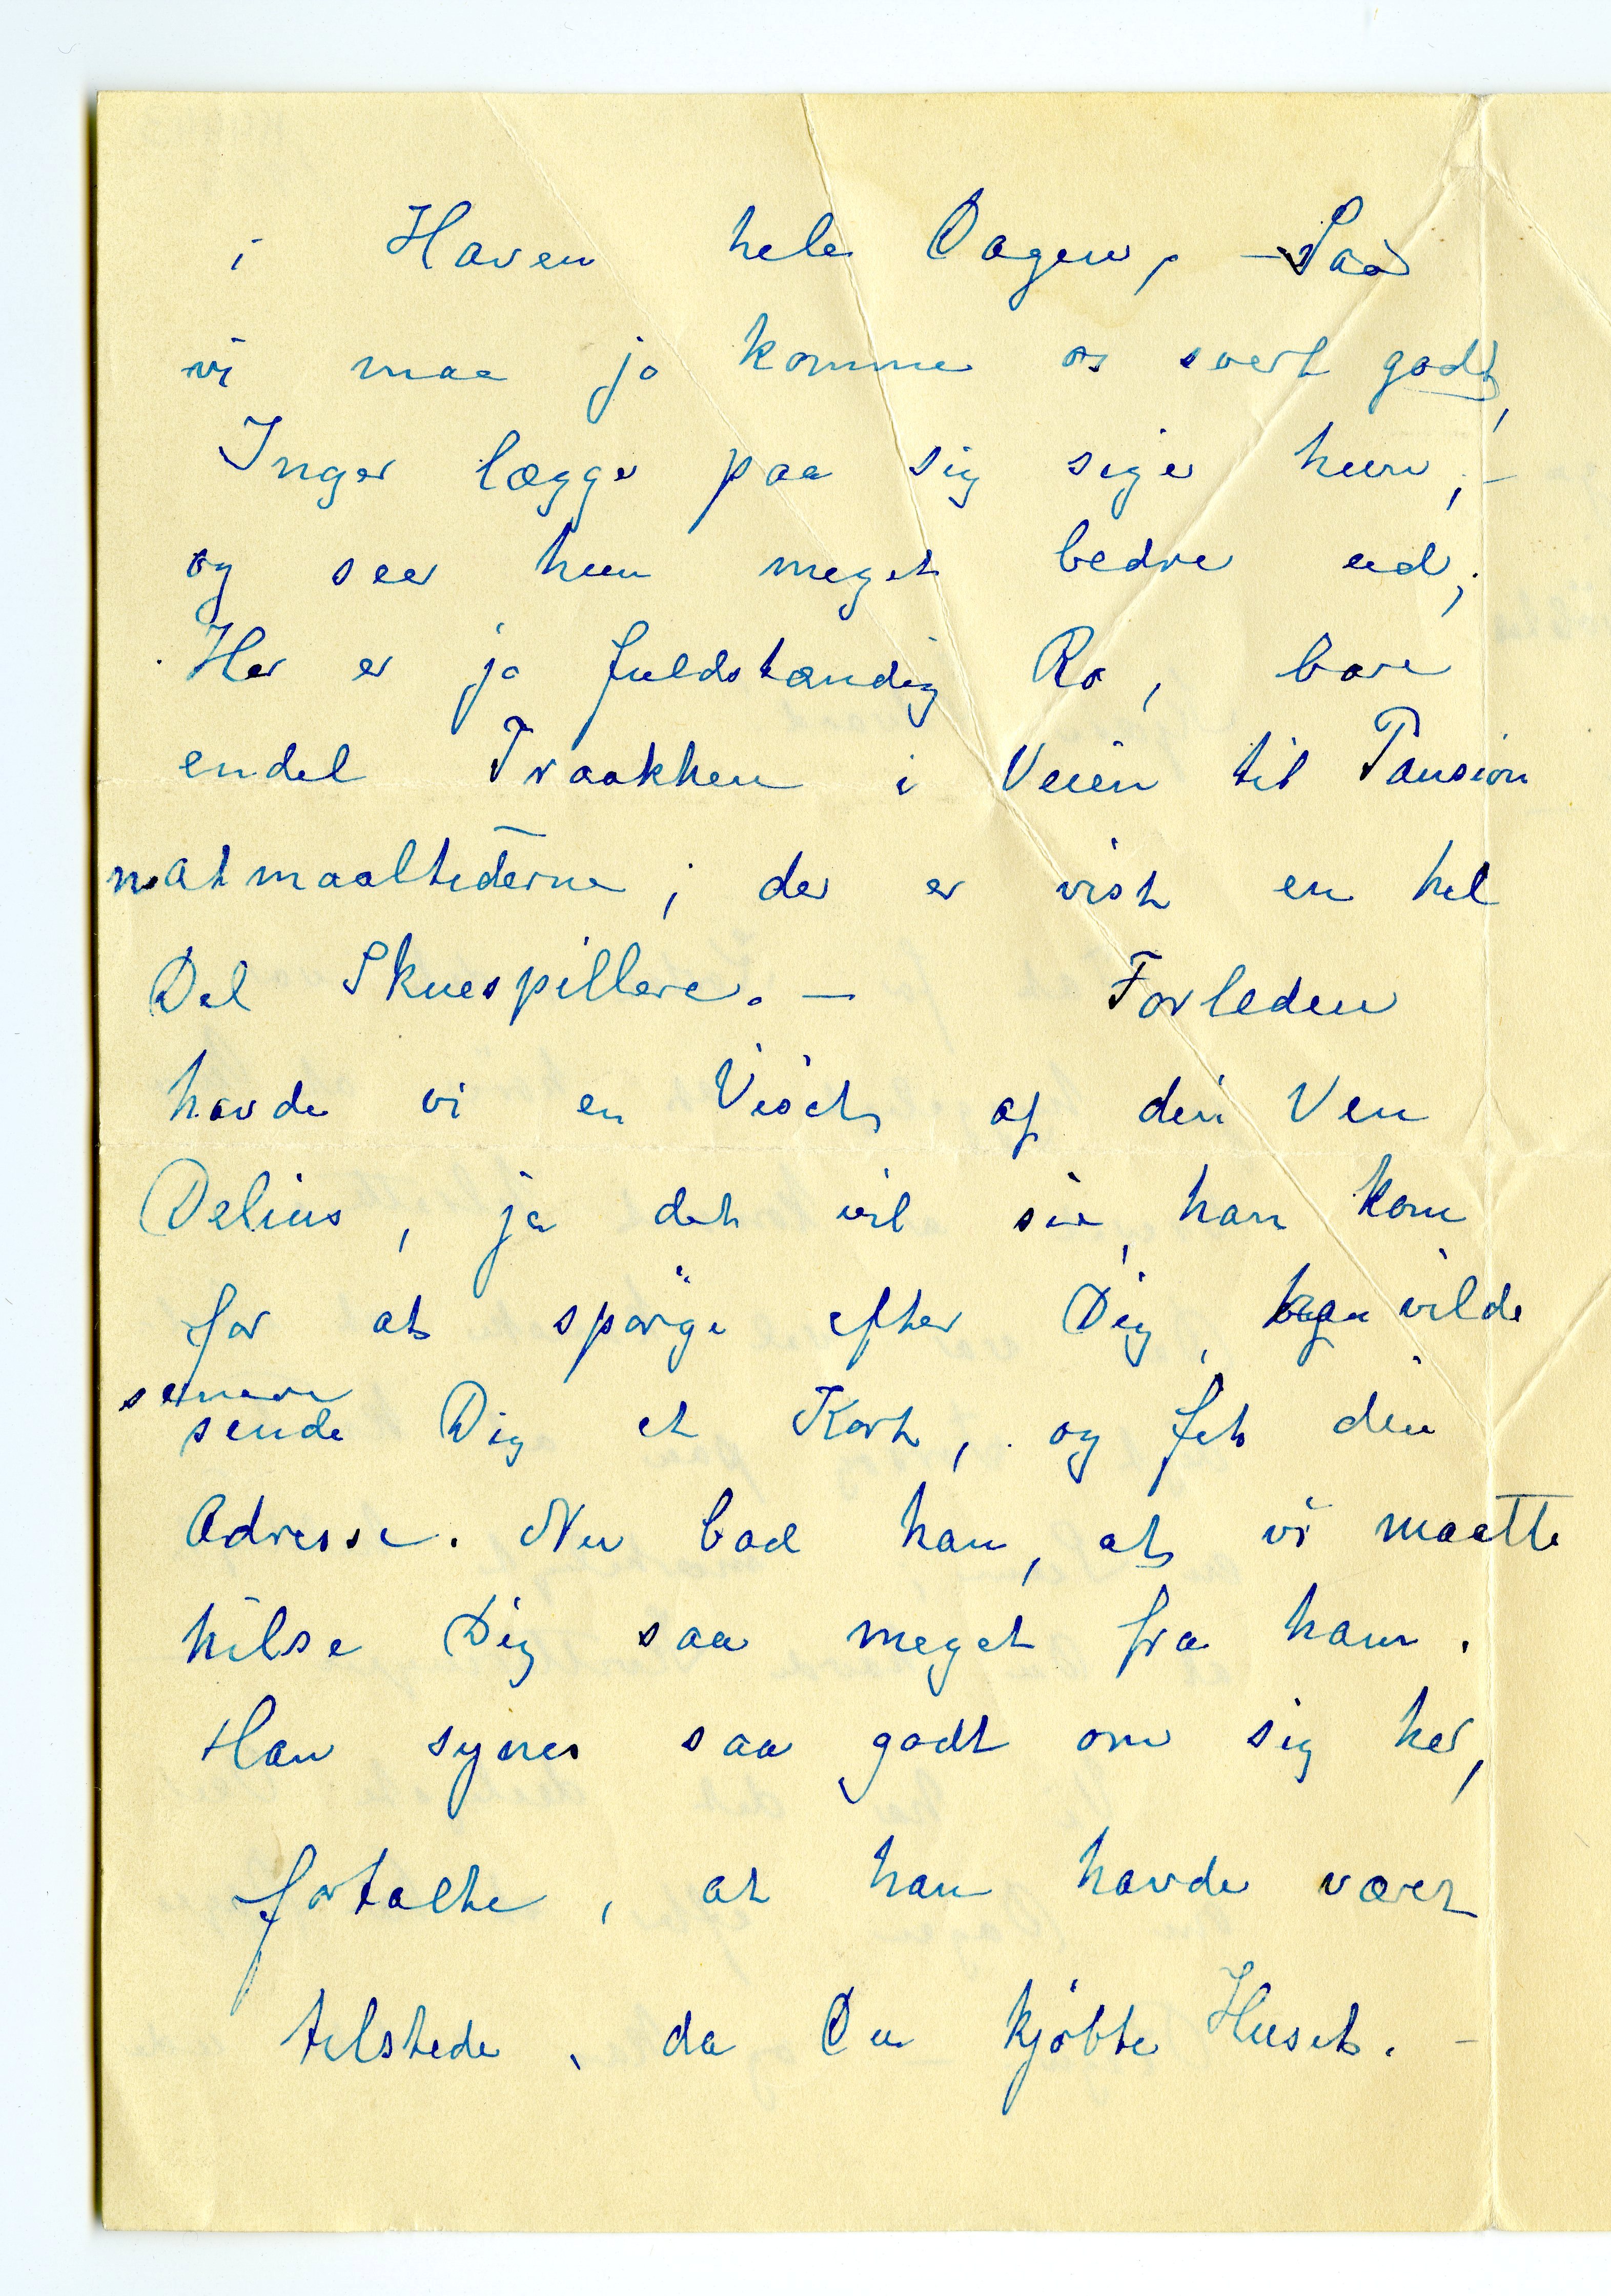 i Haven hele Dagen, – Saa
vi maa jo komme os svert godt,
Inger lægge paa sig siger hun, –
og seer hun meget bedre ud;
Her er jo fuldstændig Ro, bare
endel Traakken i Veien til Pansion
matmaaltiderne; der er vist en hel
Del Skuespillere. – Forleden
havde vi en Visit af din Ven
Delius, ja det vil sie, han kom
for at spørge efter Dig, han vilde
senere
sende Dig et Kort, og fik din
Adresse. Nu bad han, at vi maatte
hilse Dig saa meget fra ham.
Han synes saa godt om sig her,
fortalte, at han havde været
tilstede, da Du kjøbte Huset. –